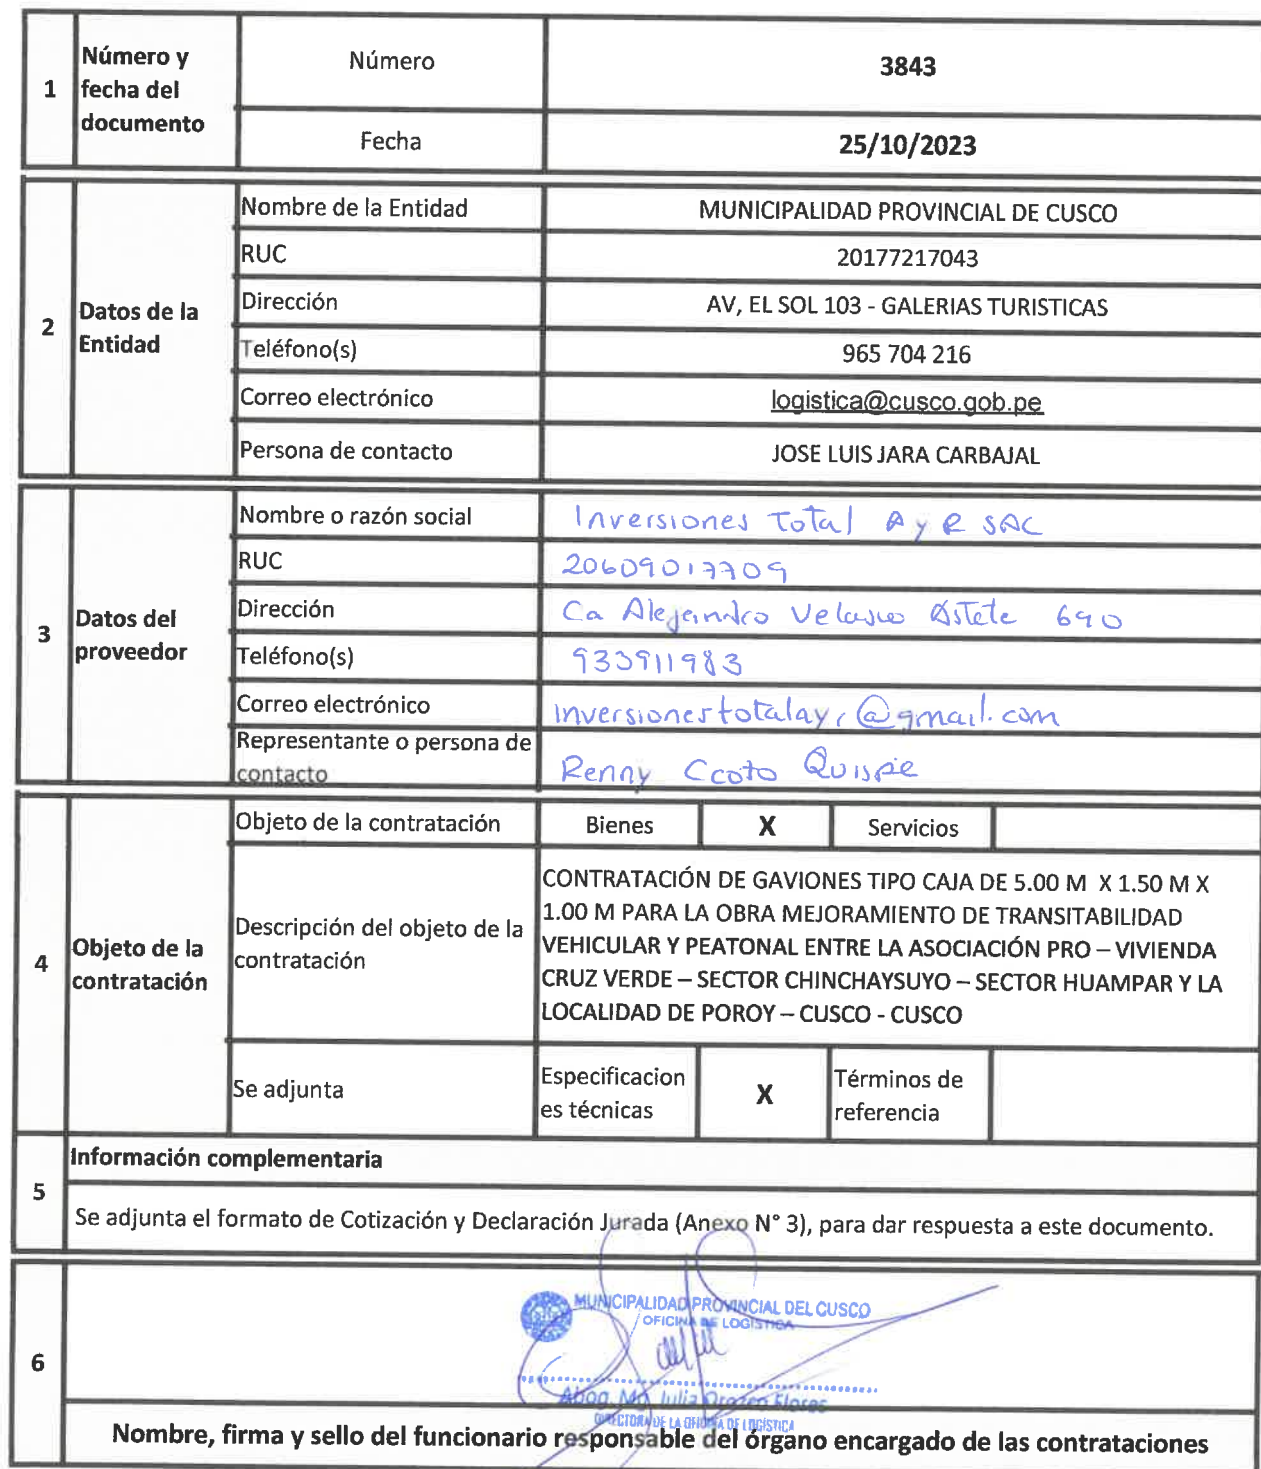 1
Número y
fecha del
documento
Número
3843
Fecha
25/10/2023
2
Datos de la
Entidad
Nombre de la Entidad
MUNICIPALIDAD PROVINCIAL DE CUSCO
RUC
20177217043
Dirección
AV, EL SOL 103 - GALERIAS TURISTICAS
Teléfono(s)
965 704 216
Correo electrónico
logistica@cusco.gob.pe
Persona de contacto
JOSE LUIS JARA CARBAJAL
3
Datos del
proveedor
Nombre o razón social
Inversiones Total A y R SAC
RUC
20609017709
Dirección
Ca Alejandro Velasco Astete 690
Teléfono(s)
933911983
Correo electrónico
inversionestotalayr@gmail.com
Representante o persona de
contacto
Renny Ccoto Quispe
4
Objeto de la
contratación
Objeto de la contratación
Bienes
X
Servicios
Descripción del objeto de la
contratación
CONTRATACIÓN DE GAVIONES TIPO CAJA DE 5.00 M X 1.50 M X
1.00 M PARA LA OBRA MEJORAMIENTO DE TRANSITABILIDAD
VEHICULAR Y PEATONAL ENTRE LA ASOCIACIÓN PRO – VIVIENDA
CRUZ VERDE – SECTOR CHINCHAYSUYO – SECTOR HUAMPAR Y LA
LOCALIDAD DE POROY – CUSCO - CUSCO
Se adjunta
Especificacion
es técnicas
X
Términos de
referencia
5
Información complementaria
Se adjunta el formato de Cotización y Declaración Jurada (Anexo N° 3), para dar respuesta a este documento.
6
MUNICIPALIDAD PROVINCIAL DEL CUSCO
OFICINA DE LOGISTICA
Abog. Mg. Julia Orozco Flores
DIRECTORA DE LA OFICINA DE LOGÍSTICA
Nombre, firma y sello del funcionario responsable del órgano encargado de las contrataciones